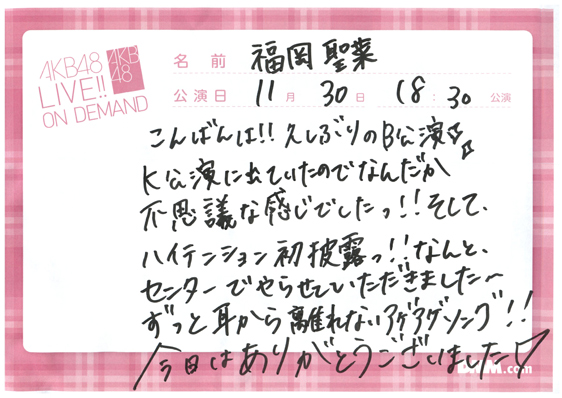 AKB48
LIVE!!
ON DEMAND
AKB
48
名前 福岡聖菜
公演日 11月30日 18:30 公演
こんばんは!! 久しぶりのB公演
K公演に出ていたのでなんだか
不思議な感じでしたっ!! そして、
ハイテンション初披露っ!! なんと、
センターでやらせていただきました〜
ずっと耳から離れないアゲアゲソング!!
今日はありがとうございました♡
DMM.com